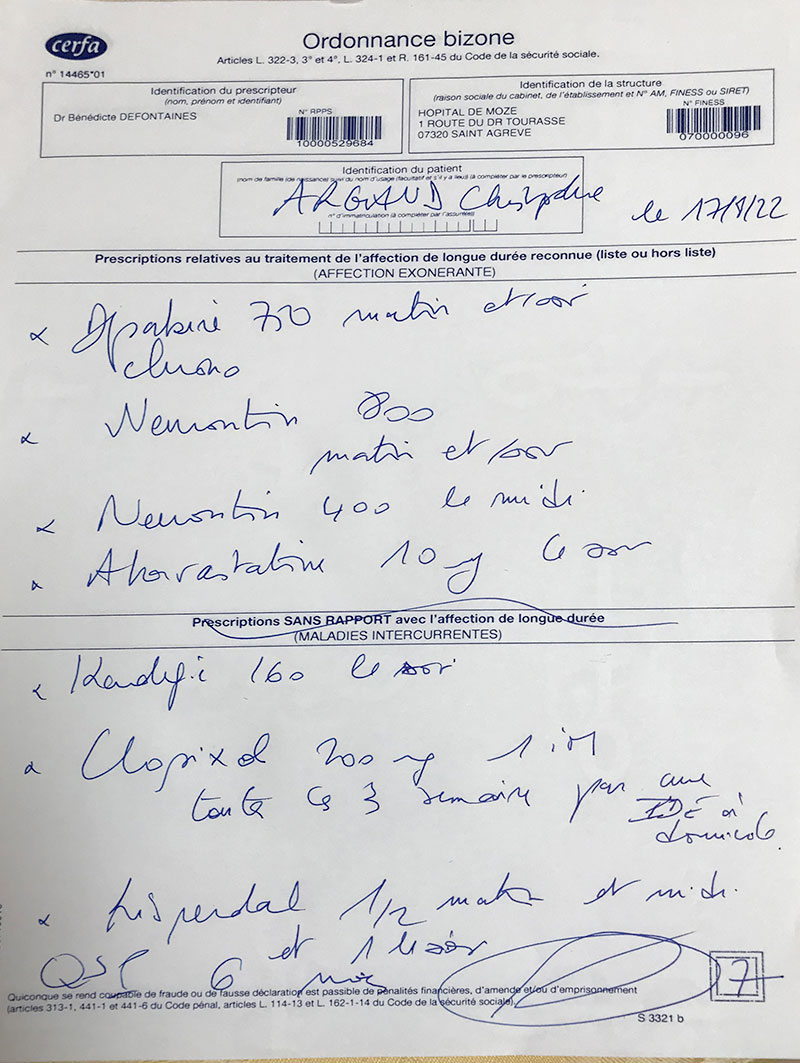 cerfa
n° 14465*01
Ordonnance bizone
Articles L. 322-3, 3° et 4°, L. 324-1 et R. 161-45 du Code de la sécurité sociale.
Identification du prescripteur
(nom, prénom et identifiant)
Dr Bénédicte DEFONTAINES
N° RPPS
10000529684
Identification de la structure
(raison sociale du cabinet, de l'établissement et N° AM, FINESS ou SIRET)
HOPITAL DE MOZE
1 ROUTE DU DR TOURASSE
07320 SAINT AGREVE
N° FINESS
070000096
Identification du patient
(nom de famille (de naissance) suivi du nom d'usage (facultatif et s'il y a lieu)) (à compléter par le prescripteur)
ARGAUD Christophe
le 17/1/22
n° d'immatriculation (à compléter par l'assuré(e))
Prescriptions relatives au traitement de l'affection de longue durée reconnue (liste ou hors liste)
(AFFECTION EXONERANTE)
750 matin et soir
chrono
Neurontin 800
matin et soir
Neurontin 400 le midi
Atorvastatine 10 mg le soir
Prescriptions SANS RAPPORT avec l'affection de longue durée
(MALADIES INTERCURRENTES)
160 le soir
Clopixol 200 mg 1 iM
toute les 3 semaine par une
IDE à
domicile
Risperdal 1/2 matin et midi
et 1 le soir
QSP 6 mois
7
Quiconque se rend coupable de fraude ou de fausse déclaration est passible de pénalités financières, d'amende et/ou d'emprisonnement
(articles 313-1, 441-1 et 441-6 du Code pénal, articles L. 114-13 et L. 162-1-14 du Code de la sécurité sociale).
S 3321 b